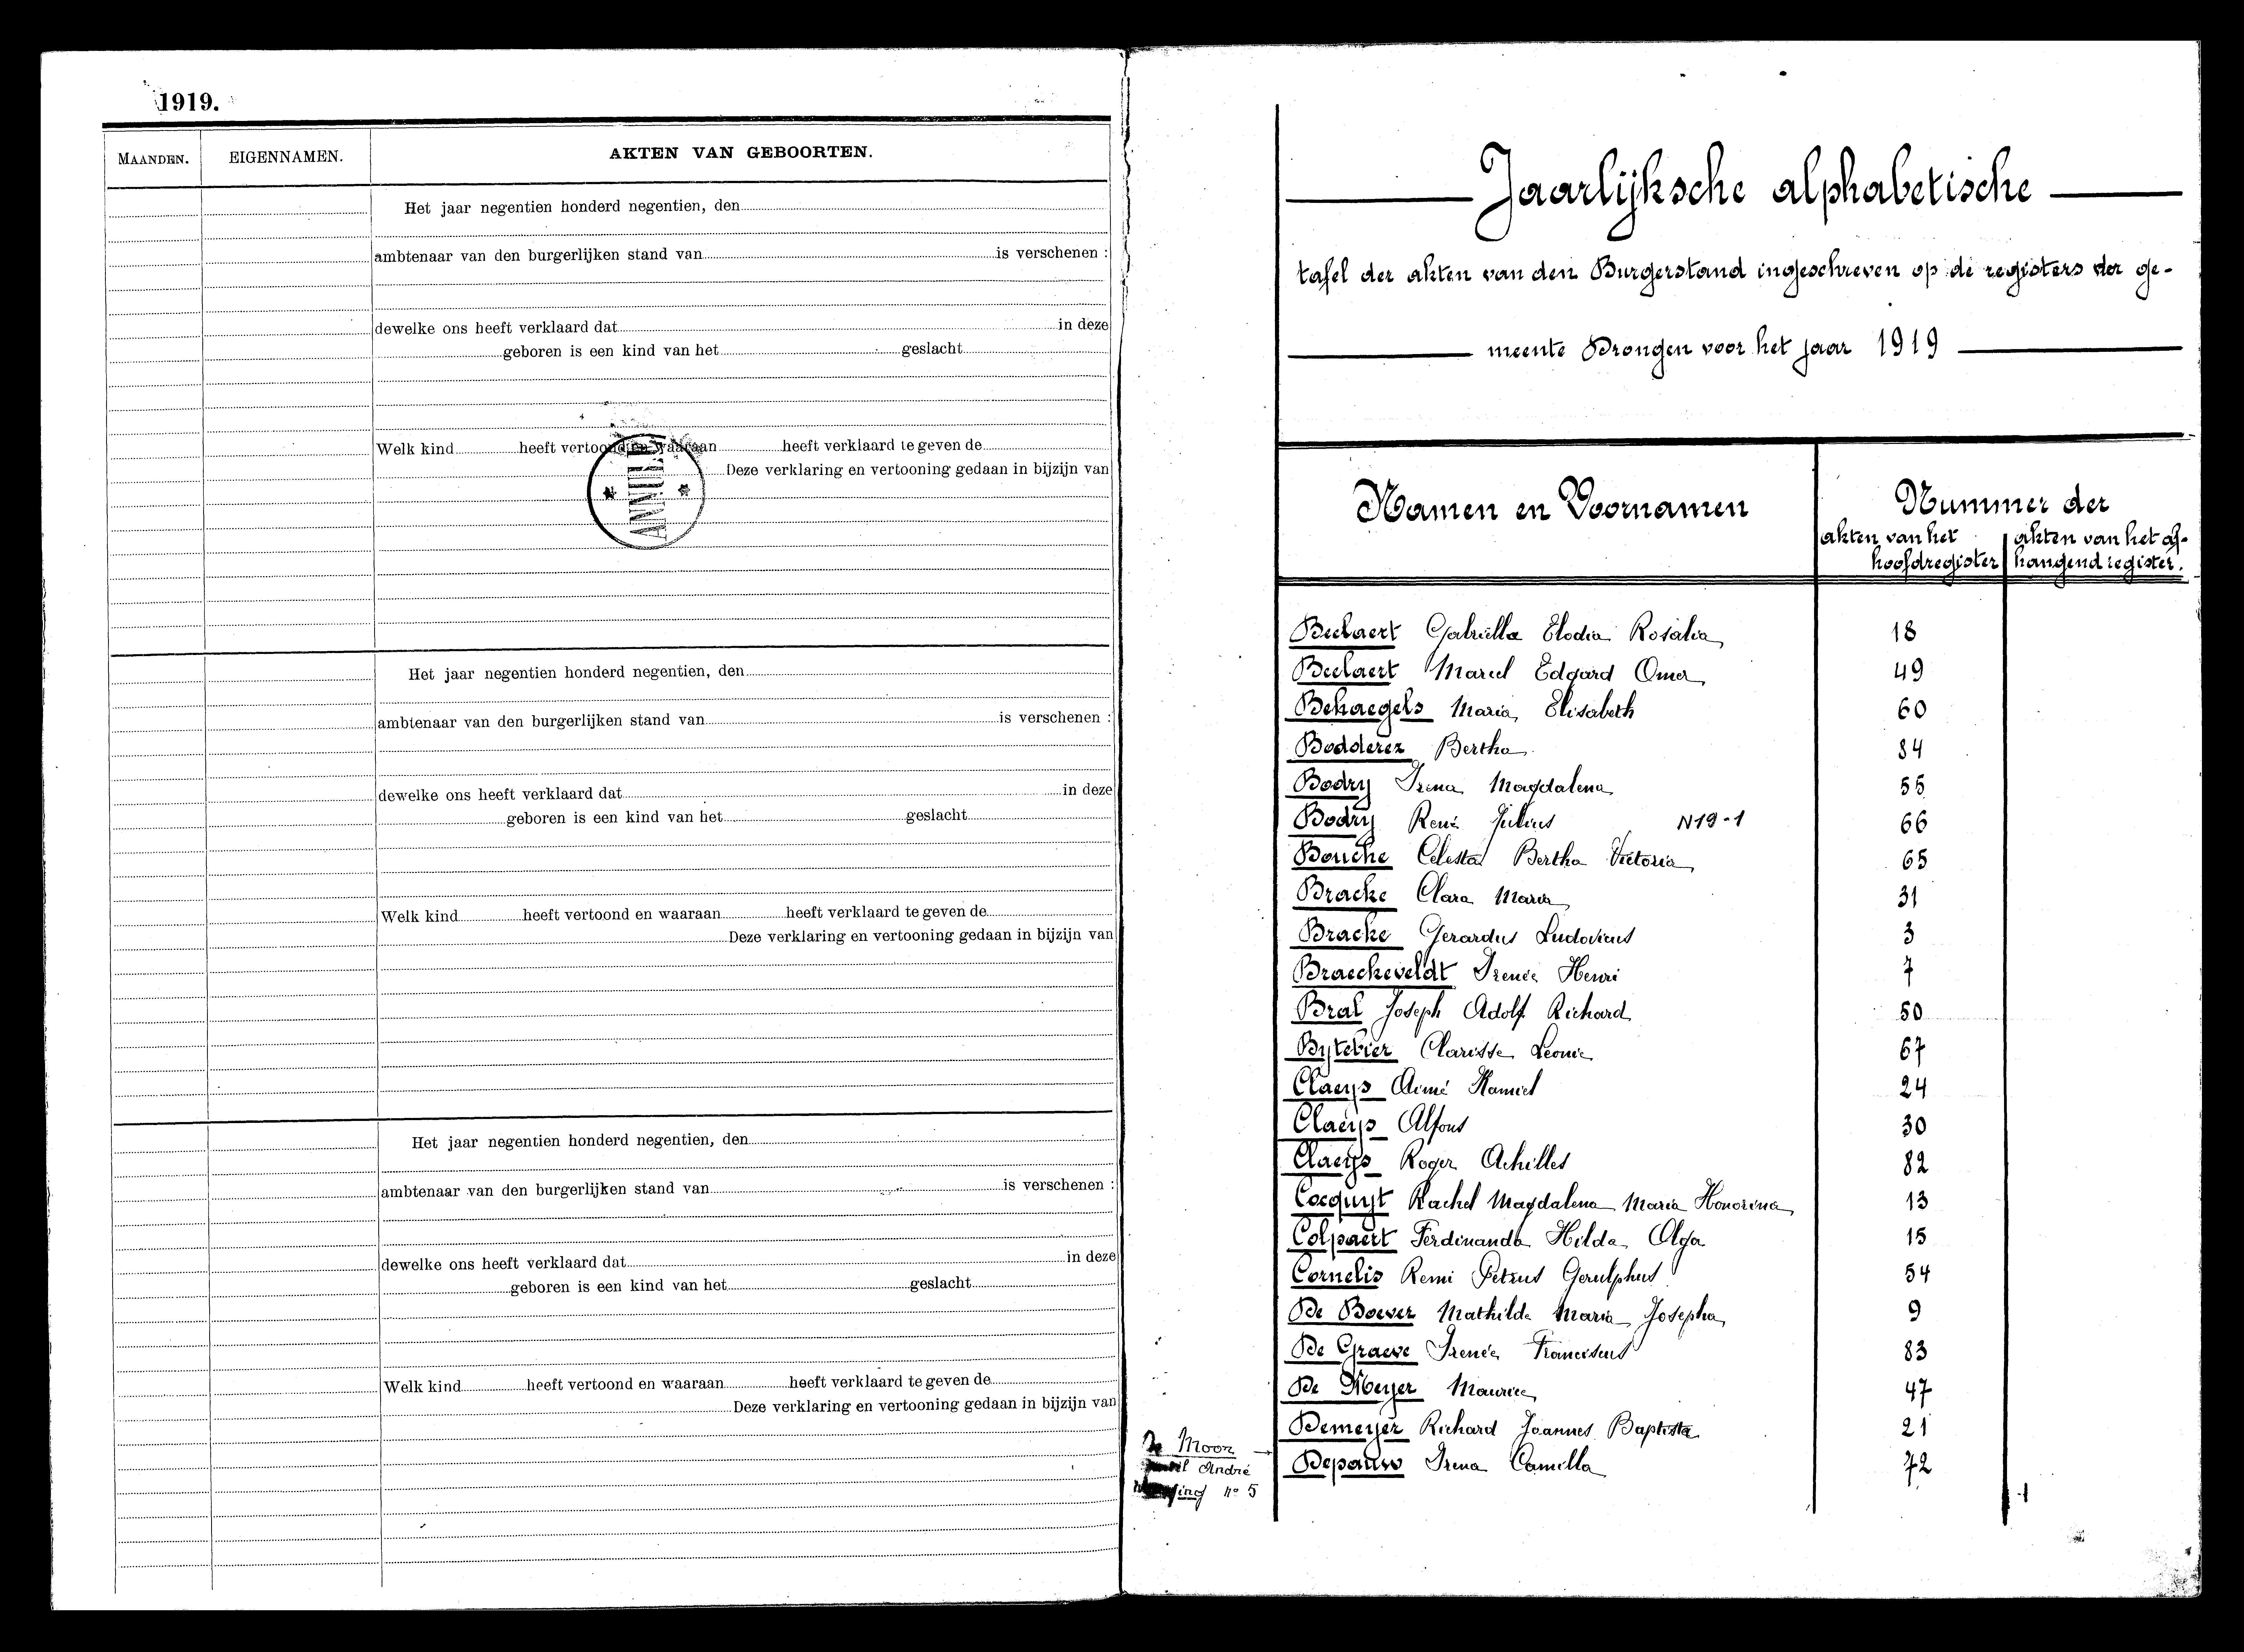 1919.
MAANDEN.
EIGENNAMEN.
AKTEN VAN GEBOORTEN.
Het jaar negentien honderd negentien, den
ambtenaar van den burgerlijken stand van is verschenen :
dewelke ons heeft verklaard dat in deze
geboren is een kind van het geslacht
Welk kind heeft vertoond en waaraan heeft verklaard te geven de
Deze verklaring en vertooning gedaan in bijzijn van
ANNUL
Het jaar negentien honderd negentien, den
ambtenaar van den burgerlijken stand van is verschenen :
dewelke ons heeft verklaard dat in deze
geboren is een kind van het geslacht
Welk kind heeft vertoond en waaraan heeft verklaard te geven de
Deze verklaring en vertooning gedaan in bijzijn van
Het jaar negentien honderd negentien, den
ambtenaar van den burgerlijken stand van is verschenen :
dewelke ons heeft verklaard dat in deze
geboren is een kind van het geslacht
Welk kind heeft vertoond en waaraan heeft verklaard te geven de
Deze verklaring en vertooning gedaan in bijzijn van
Jaarlijksche alphabetische
tafel der akten van den Burgerstand ingeschreven op de registers der ge-
meente Drongen voor het jaar 1919
Namen en Voornamen
Nummer der
akten van het hoofdregister
akten van het af-hangend register.
Beelaert Gabriella Elodia Rosalia 18
Beelaert Marcel Edgard Omer 49
Behaegels Maria Elisabeth 60
Bodderez Bertha 84
Bodry Irena Magdalena 55
Bodry René Julius N19-1 66
Bouche Celesta Bertha Victoria 65
Bracke Clara Maria 31
Bracke Gerardus Ludovicus 3
Braeckeveldt Irenée Henri 7
Bral Joseph Adolf Richard 50
Bytebier Clarisse Leonie 67
Claeys Aimé Kamiel 24
Claeys Alfons 30
Claeys Roger Achilles 82
Cocquyt Rachel Magdalena Maria Honorina 13
Colpaert Ferdinanda Hilda Olga 15
Cornelis Remi Petrus Gerulphus 54
De Boever Mathilde Maria Josepha 9
De Graeve Irenée Franciscus 83
De Meyer Maurice 47
Demeyer Richard Joannes Baptista 21
Depauw Irena Camilla 72
De Moor
André
nº 5